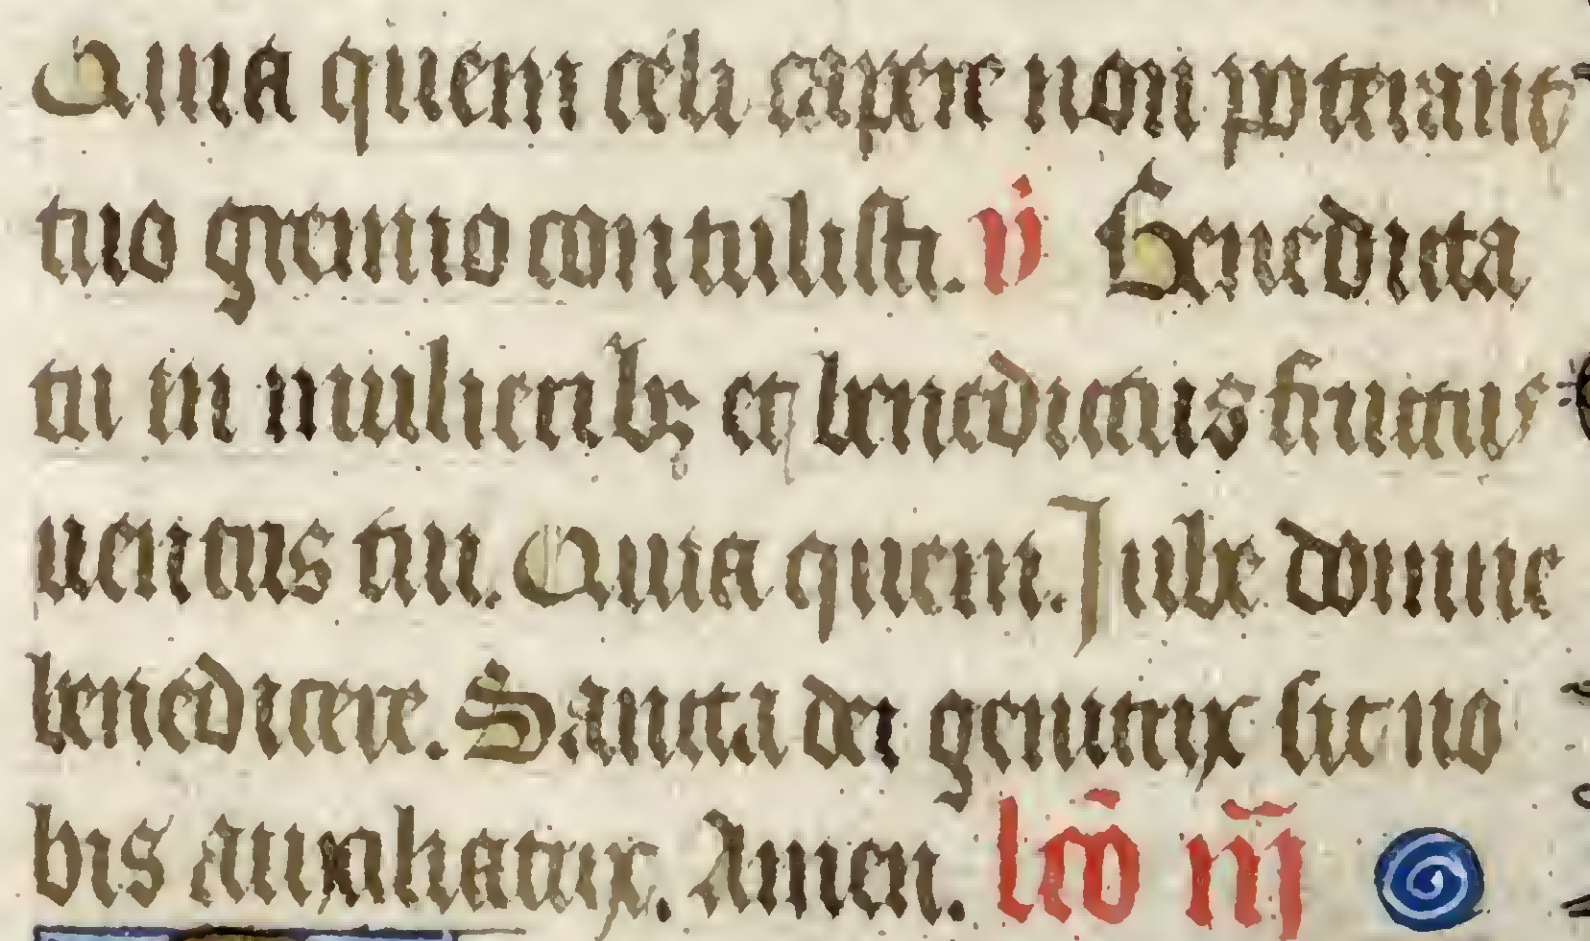 Quia quem celi capere non poterant
tuo gremio contulisti. v̇ Benedicta
tu in mulieribꝫ et benedictus fructus
uentris tui. Quia quem. Iube domine
benedicere. Sancta dei genitrix sit no
bis auxiliatrix. Amen. lcō iij